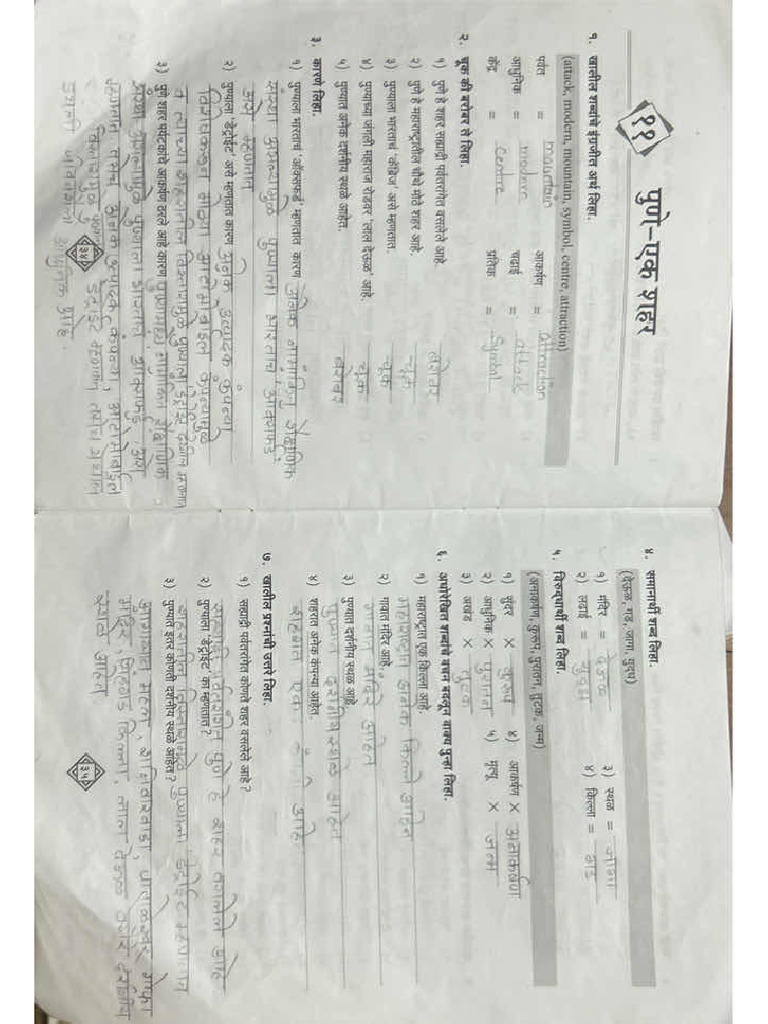 ११ पुणे-एक शहर
१. खालील शब्दांचे इंग्रजीत अर्थ लिहा.
(attack, modern, mountain, symbol, centre, attraction)
पर्वत = mountain आकर्षण = attraction
आधुनिक = modern चढाई = attack
केंद्र = centre प्रतिक = Symbol
२. चूक की बरोबर ते लिहा.
१) पुणे हे शहर सह्याद्री पर्वतरांगेत वसलेले आहे. बरोबर
२) पुणे हे महाराष्ट्रातील चौथे मोठे शहर आहे. चूक
३) पुण्याला भारताचं 'केंब्रिज' असे म्हणतात. चूक
४) पुण्याच्या जंगली महाराज रोडवर 'लाल देऊळ' आहे. चूक
५) पुण्यात अनेक दर्शनीय स्थळे आहेत. बरोबर
३. कारणे लिहा.
१) पुण्याला भारताचं 'ऑक्सफर्ड' म्हणतात कारण अनेक नामांकित शैक्षणिक
संस्था असल्यामुळे पुण्याला भारताचं 'ऑक्सफर्ड
असे म्हणतात
२) पुण्याला 'डेट्रॉईट' असे म्हणतात कारण अनेक उत्पादक कंपन्या
विशेषकरून मोठ्या ऑटोमोबाईल कंपन्यामुळे
व त्याच्या शहरातील विस्तारामुळे पुण्याला डेट्रॉईट देखील म्हणतात
३) पुणे शहर पर्यटकांचे आकर्षण ठरले आहे कारण पुण्यामध्ये नामांकित शैक्षणिक
संस्था असल्यामुळे पुण्याला भारताचं ऑक्सफर्ड असे
म्हणतात तसेच अनेक उत्पादक कंपन्या, ऑटोमोबाईल
विस्तारामुळे पुण्याला डेट्रॉईट म्हणतात, तसेच
३४
४. समानार्थी शब्द लिहा.
(देऊळ, गड, जागा, युद्ध)
१) मंदिर = देऊळ ३) स्थळ = जागा
२) लढाई = युद्ध ४) किल्ला = गड
५. विरुद्धार्थी शब्द लिहा.
(अनाकर्षण, कुरूप, पुरातन, तुटक, जन्म)
१) सुंदर × कुरूप ४) आकर्षण × अनाकर्षण
२) आधुनिक × पुरातन ५) मृत्यू × जन्म
३) अखंड × तुटक
६. अधोरेखित शब्दांचे वचन बदलून वाक्य पुन्हा लिहा.
१) महाराष्ट्रात एक किल्ला आहे.
महाराष्ट्रात अनेक किल्ले आहेत
२) गावात मंदिर आहे.
गावात मंदिरे आहेत
३) पुण्यात दर्शनीय स्थळ आहे.
पुण्यात दर्शनीय स्थळे आहेत
४) शहरात अनेक कंपन्या आहेत.
शहरात एक कंपनी आहे
७. खालील प्रश्नांची उत्तरे लिहा.
१) सह्याद्री पर्वतरांगेत कोणते शहर वसलेले आहे?
सह्याद्री पर्वतरांगेत पुणे हे शहर वसलेले आहे
२) पुण्याला 'डेट्रॉईट' का म्हणतात?
शहरातील विस्तारामुळे पुण्याला 'डेट्रॉईट म्हणतात
३) पुण्यात इतर कोणती दर्शनीय स्थळे आहेत?
पुण्यात मंडळ, शनिवारवाडा, पाताळेश्वर गुंफा
मंदिर, सिंहगड किल्ला, लाल देऊळ वगैरे दर्शनीय
स्थळे आहेत
३५